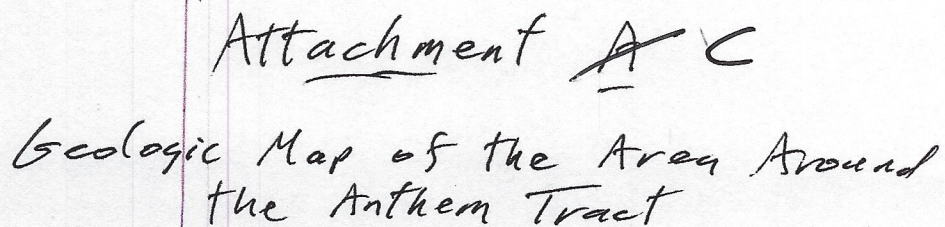 Attachment A C
Geologic Map of the Area Around
the Anthem Tract